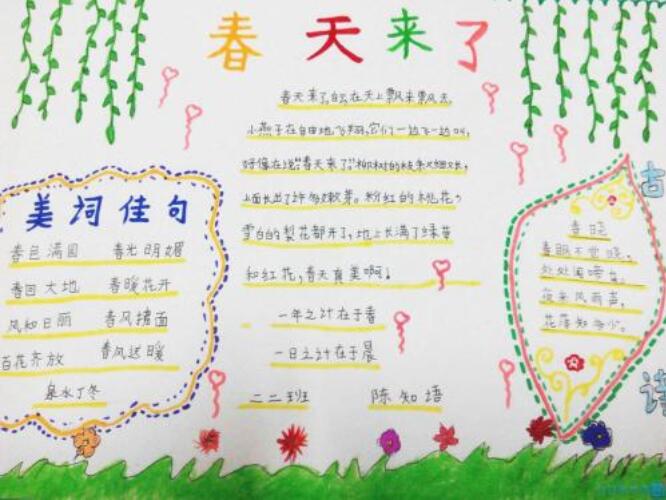 春天来了
春天来了,白云在天上飘来飘去,
小燕子在自由地飞翔,它们一边飞一边叫,
好像在说"春天来了"柳树的枝条又细又长,
上面长出了许多嫩芽。粉红的桃花,
雪白的梨花都开了,地上长满了绿草
和红花,春天真美啊!
一年之计在于春
一日之计在于晨
二二班 陈知悟
美词佳句
春色满园 春光明媚
春回大地 春暖花开
风和日丽 春风拂面
百花齐放 春风送暖
泉水丁冬
古诗
春晓
春眠不觉晓,
处处闻啼鸟。
夜来风雨声,
花落知多少。